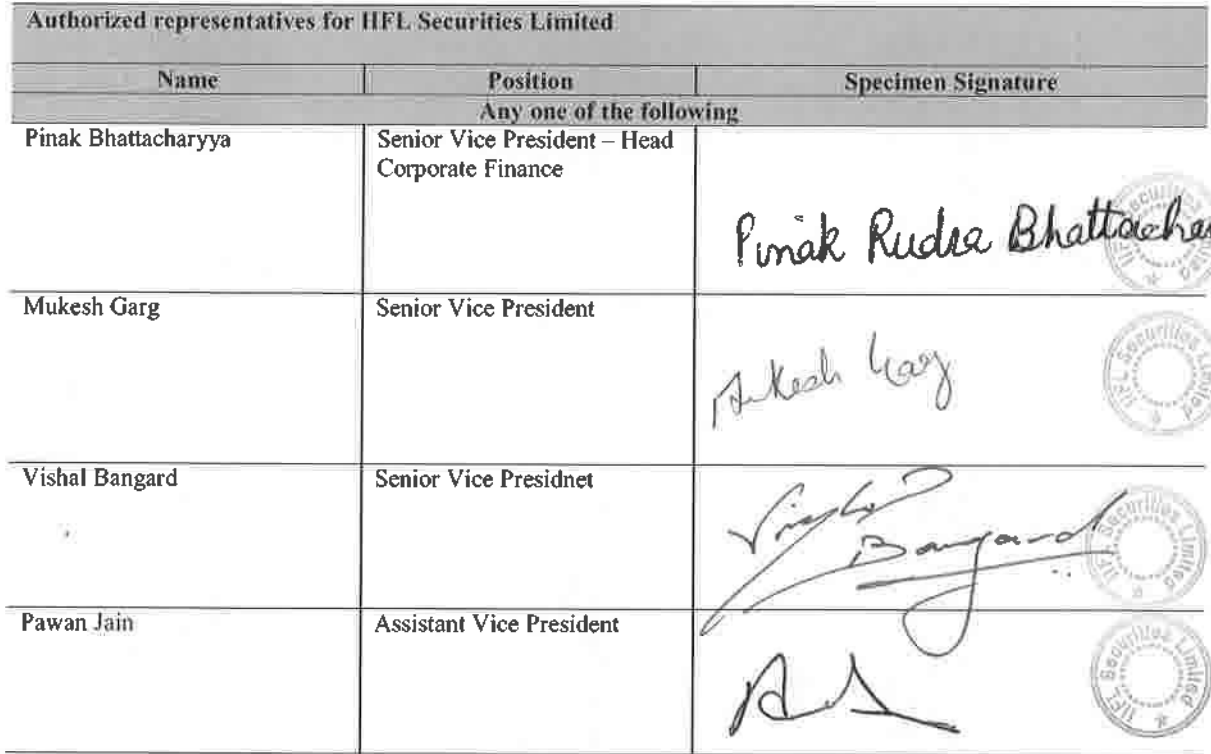 Authorized representatives for IIFL Securities Limited
Name Position Specimen Signature
Any one of the following
Pinak Bhattacharyya Senior Vice President – Head
Corporate Finance
Pinak Rudra Bhattachar
IIFL Securities Limited
Mukesh Garg Senior Vice President
Mukesh Garg
IIFL Securities Limited
Vishal Bangard Senior Vice Presidnet
Vishal
Bangard
IIFL Securities Limited
Pawan Jain Assistant Vice President
IIFL Securities Limited